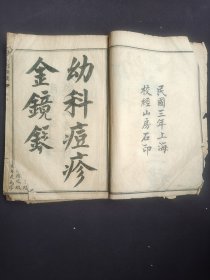 幼科痘疹
金鏡錄
民國三年上海
校經山房石印